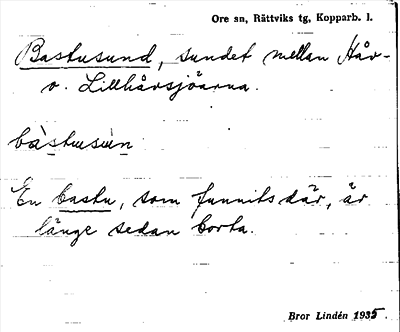 Ore sn, Rättviks tg, Kopparb. l.
Bastusund, sundet mellan Hår-
o. Lillhårsjöarna.
bàstusùn
En bastu, som funnits där, är
länge sedan borta.
Bror Lindén 1935.